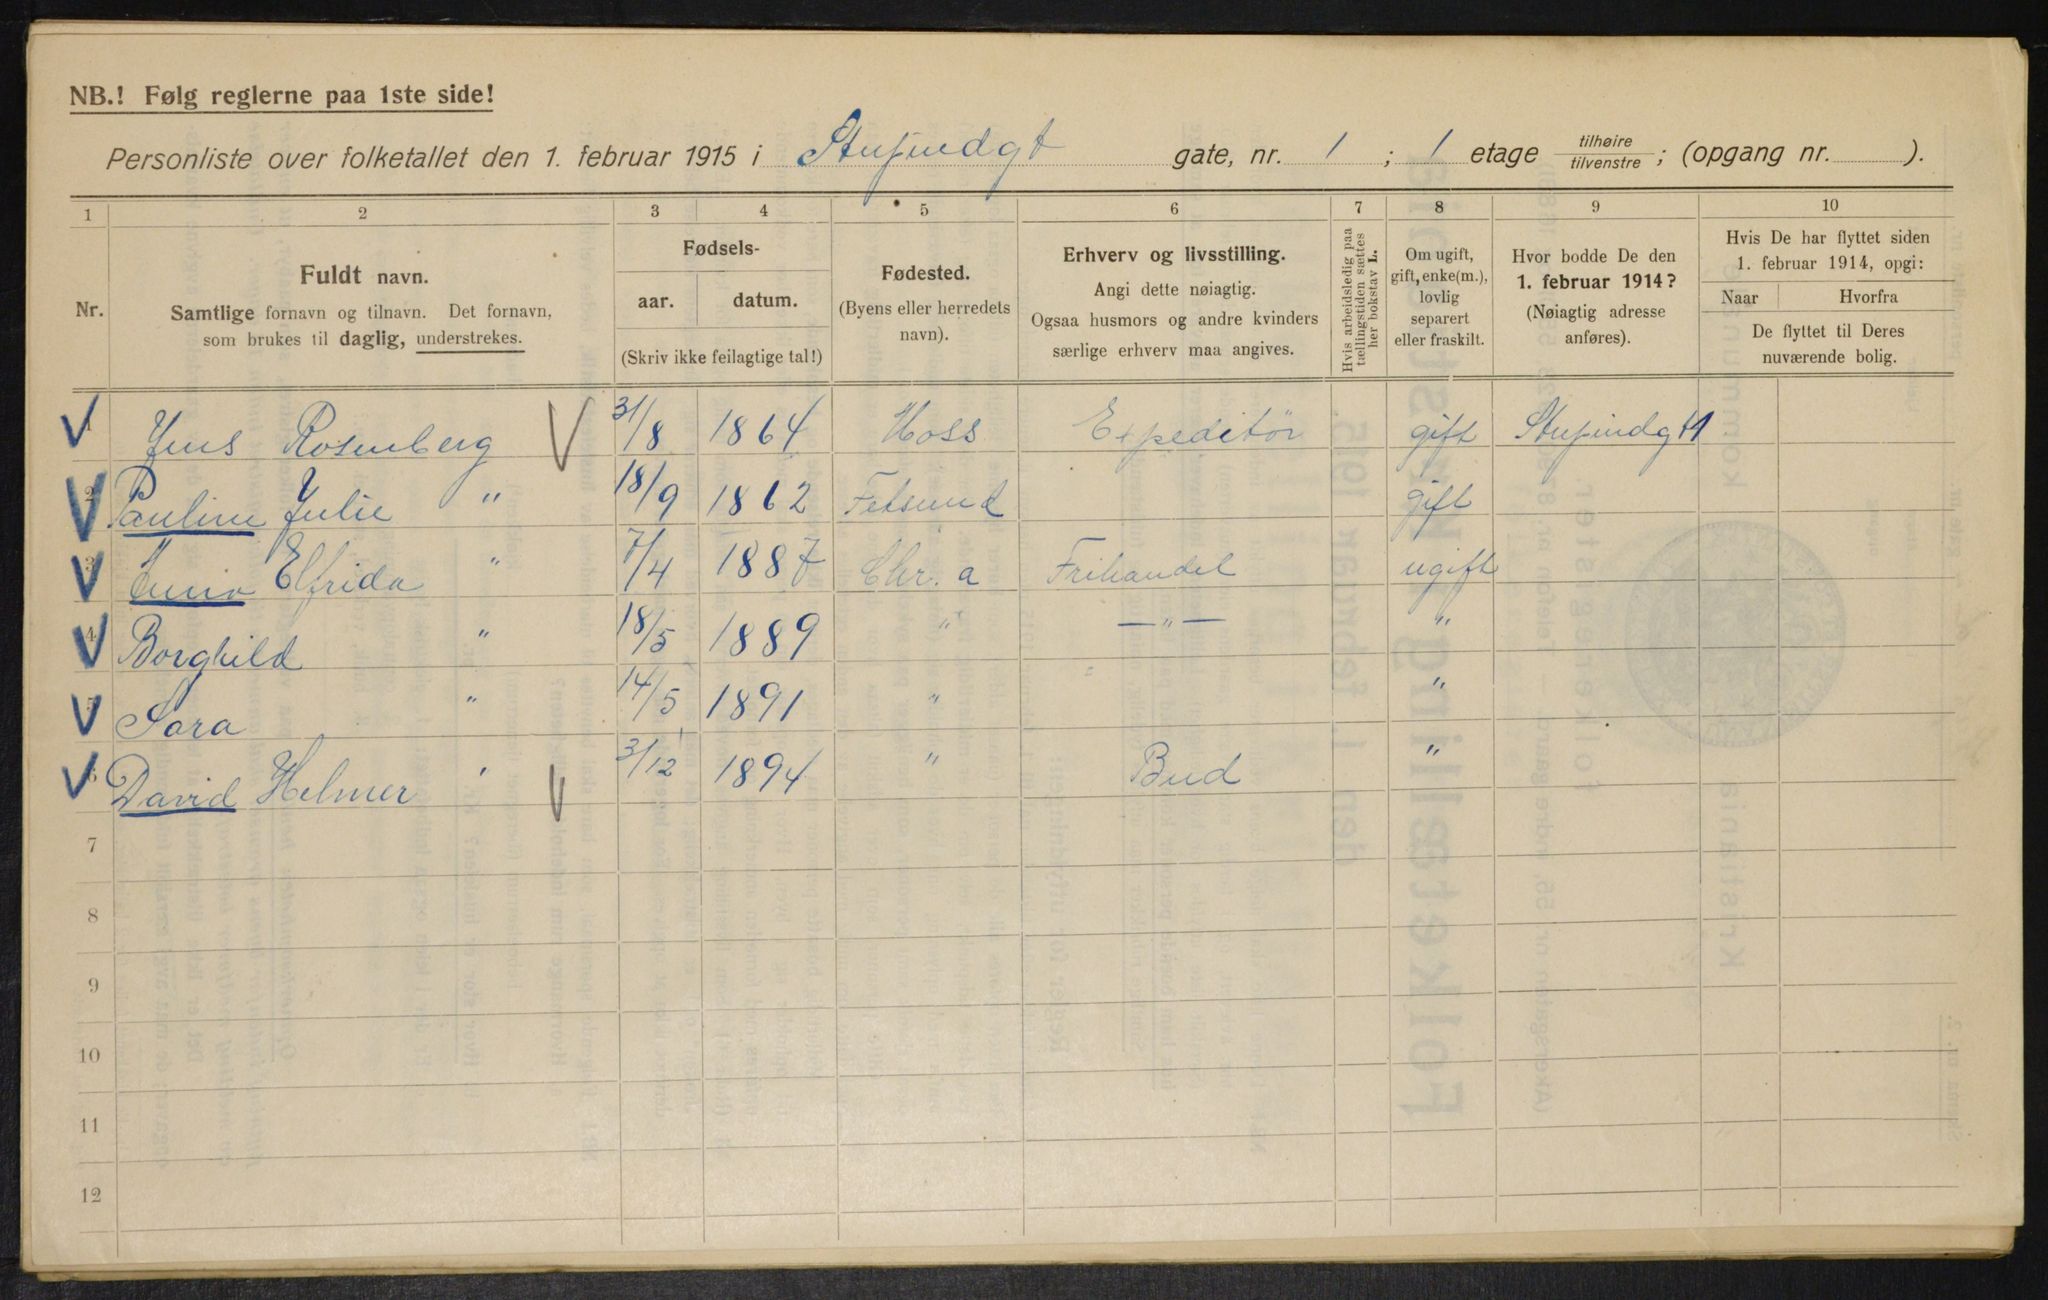 NB.! Følg reglerne paa 1ste side!
Personliste over folketallet den 1. februar 1915 i Stupindgt gate, nr. 1 ; 1 etage tilhøire tilvenstre ; (opgang nr. ).
1 2 3 4 5 6 7 8 9 10
Nr.
Fuldt navn.
Samtlige fornavn og tilnavn. Det fornavn,
som brukes til daglig, understrekes.
Fødsels-
aar. datum.
(Skriv ikke feilagtige tal!)
Fødested.
(Byens eller herredets
navn).
Erhverv og livsstilling.
Angi dette nøiagtig.
Ogsaa husmors og andre kvinders
særlige erhverv maa angives.
Hvis arbeidsledig paa
tællingstiden sættes
her bokstav L.
Om ugift,
gift, enke(m.),
lovlig
separert
eller fraskilt.
Hvor bodde De den
1. februar 1914?
(Nøiagtig adresse
anføres).
Hvis De har flyttet siden
1. februar 1914, opgi:
Naar Hvorfra
De flyttet til Deres
nuværende bolig.
1 Jens Rosenberg 31/8 1864 Moss Expeditör gift Stupindgt 1
2 Pauline Julie " 18/9 1862 Fetsund gift
3 Elfrida " 7/4 1887 Chr.a Frihandel ugift
4 Borghild " 18/5 1889 " —"— "
5 Sara " 14/5 1891 " " "
6 David Helmer " 3/12 1894 " Bud "
7
8
9
10
11
12